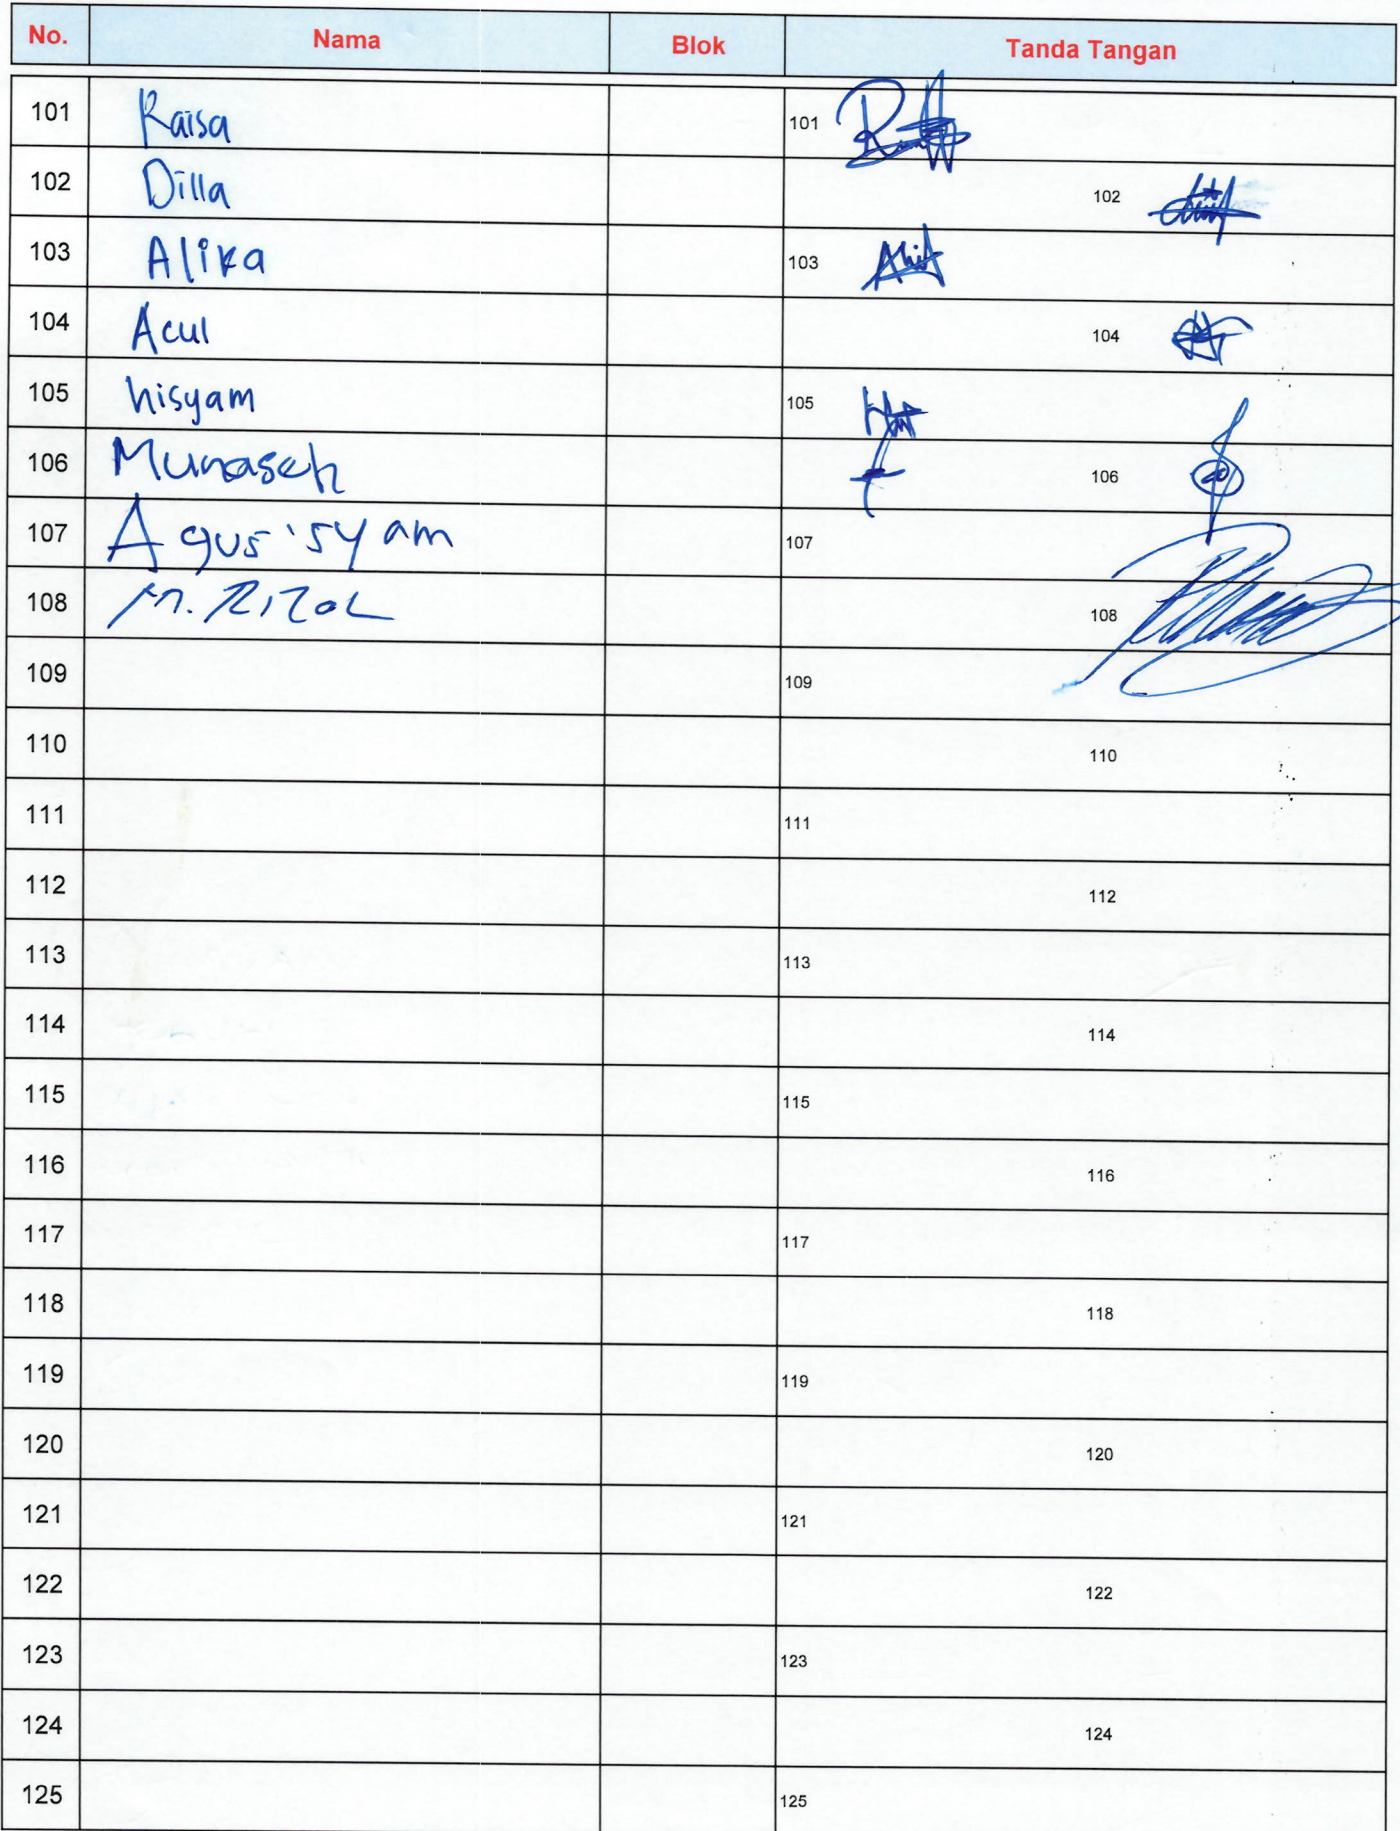 No. Nama Blok Tanda Tangan
101 Raisa 101
102 Dilla 102
103 Alika 103
104 Acul 104
105 hisyam 105
106 Munaseh 106
107 Agus 'syam 107
108 M. Rizal 108
109 109
110 110
111 111
112 112
113 113
114 114
115 115
116 116
117 117
118 118
119 119
120 120
121 121
122 122
123 123
124 124
125 125